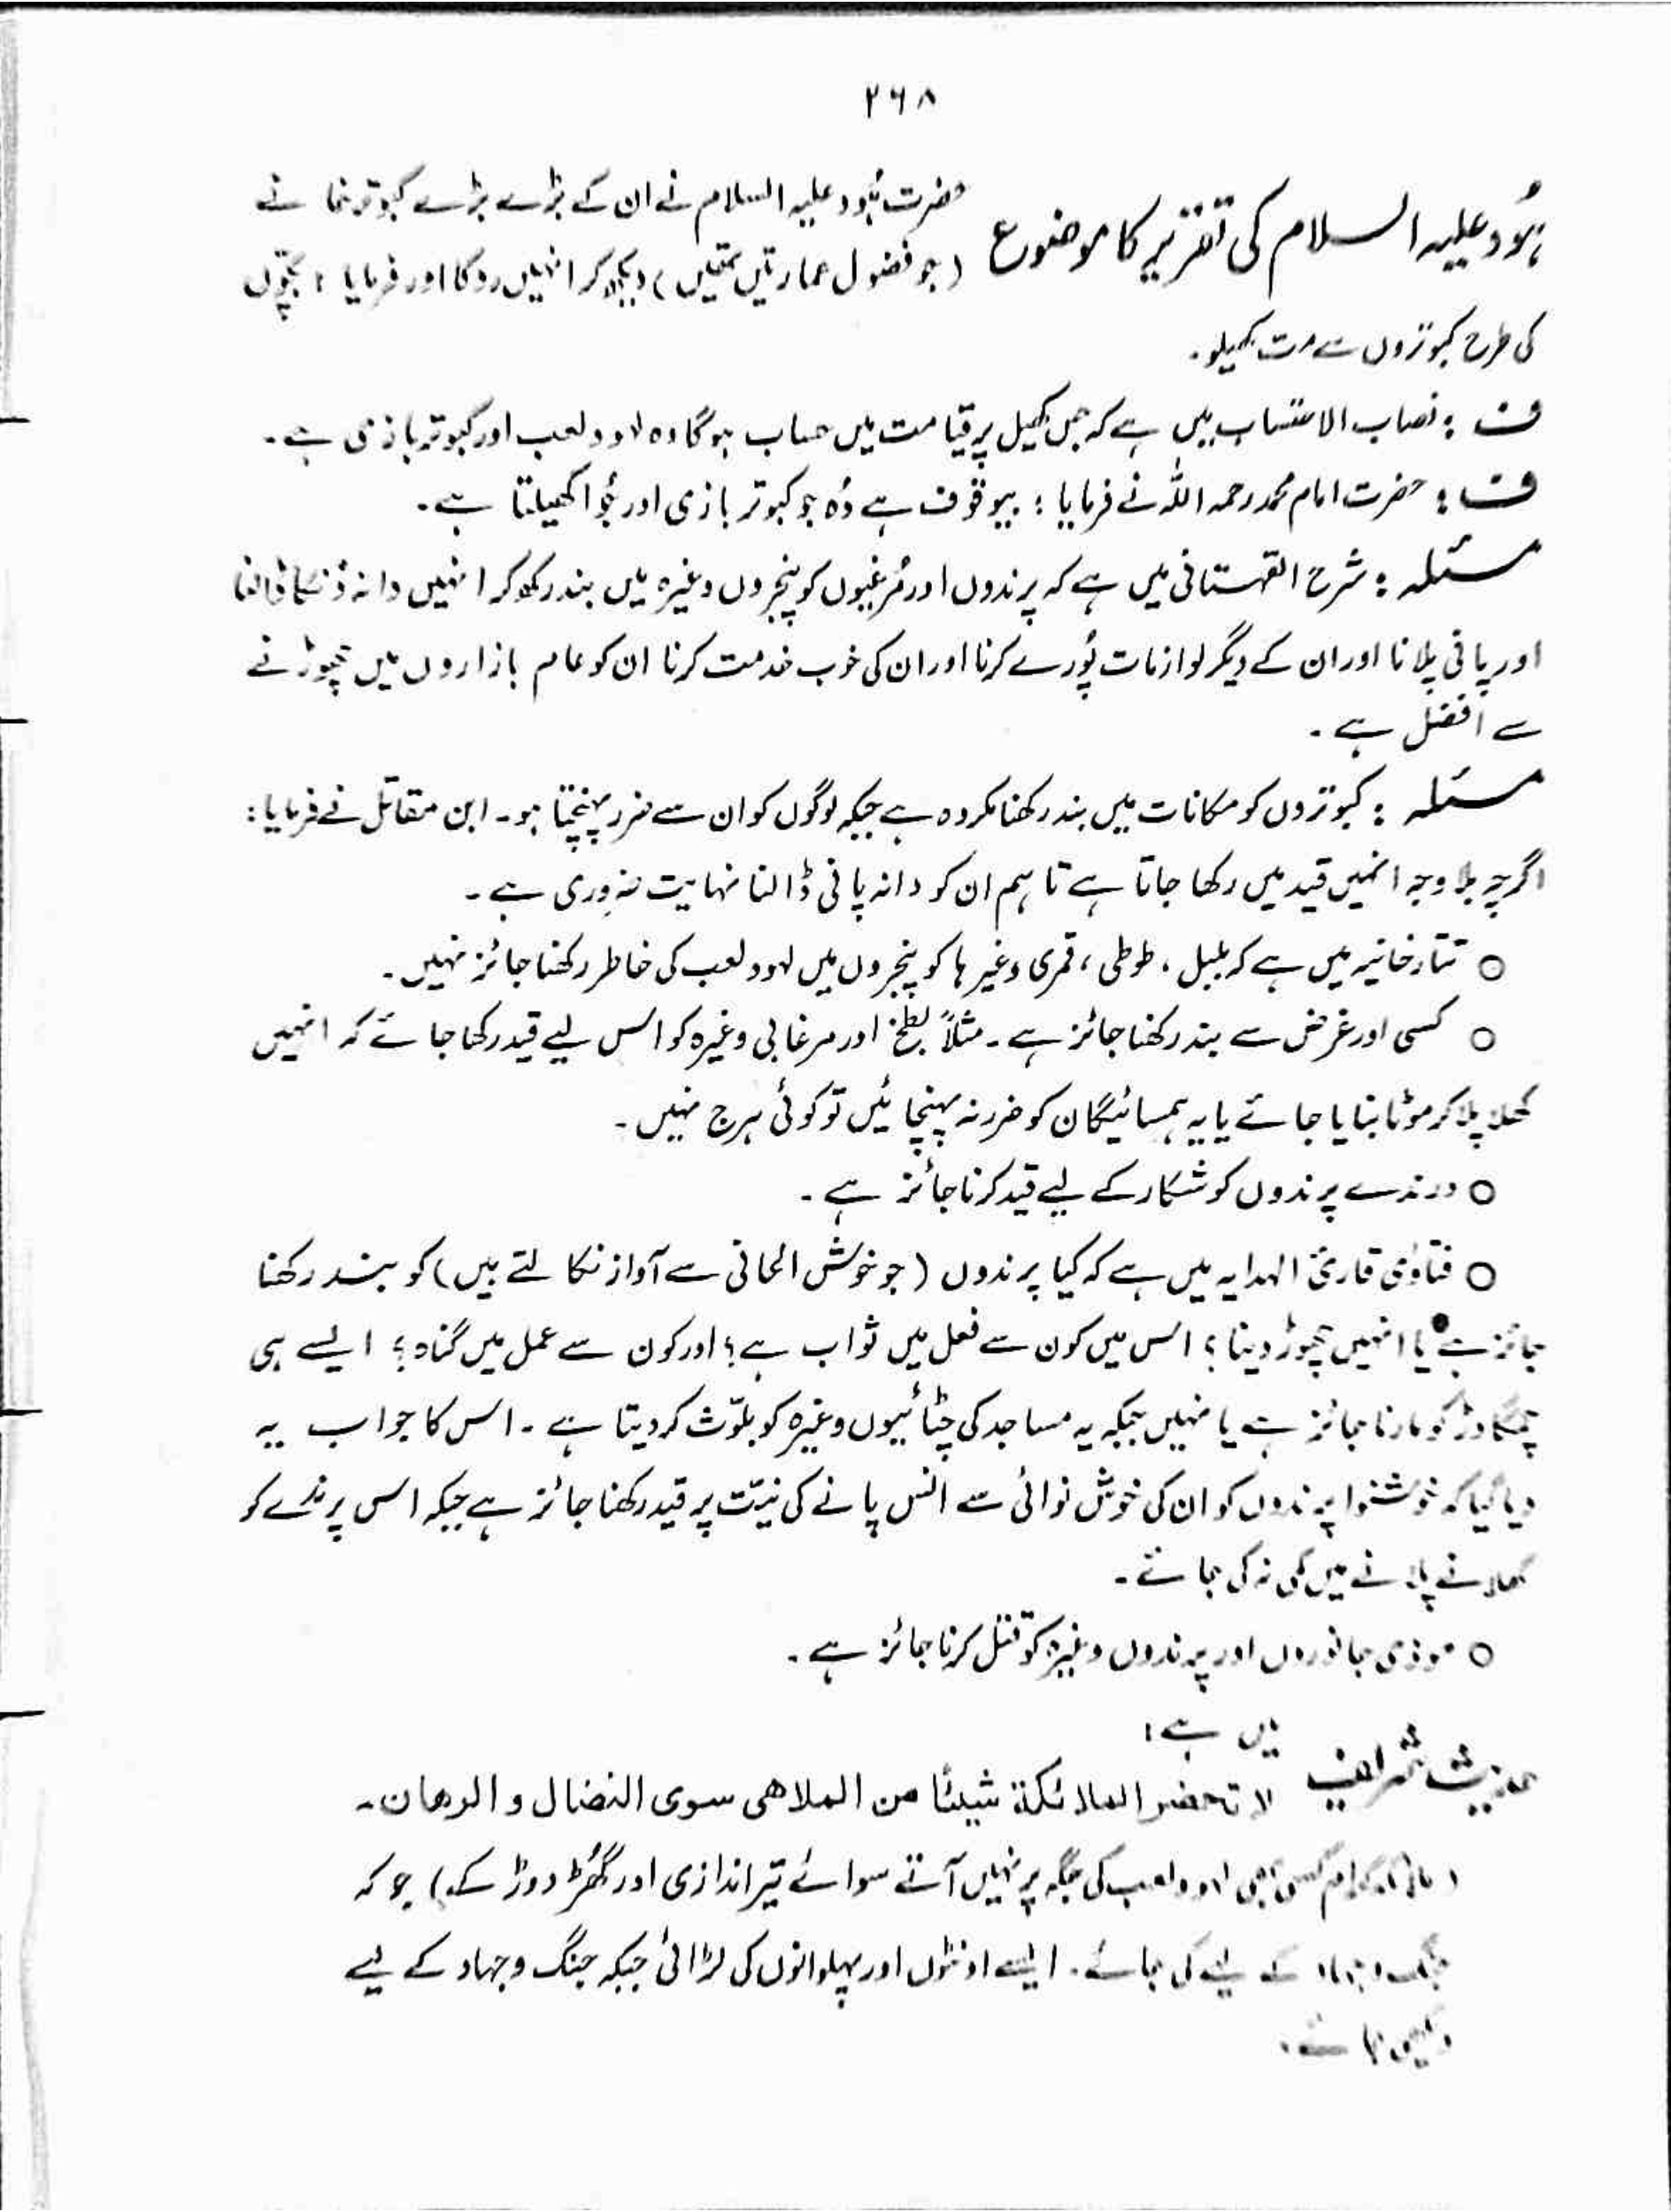 ۲۶۸
ہُود علیہ السلام کی تقریر کا موضوع
حضرت ہُود علیہ السلام نے ان کے بڑے بڑے کبوتر خانے
(جو فضول عمارتیں تھیں) دیکھ کر انہیں روکا اور فرمایا: بچّوں
کی طرح کبوتروں سے مت کھیلو۔
ف: نصاب الاحتساب میں ہے کہ جس کھیل پر قیامت میں حساب ہوگا وہ لہو و لعب اور کبوتر بازی ہے۔
ف: حضرت امام محمد رحمہ اللہ نے فرمایا: بیوقوف ہے وُہ جو کبوتر بازی اور جُوا کھیلتا ہے۔
مسئلہ: شرح القہستانی میں ہے کہ پرندوں اور مُرغیوں کو پنجروں وغیرہ میں بند رکھ کر انہیں دانہ ڈنکا ڈالنا
اور پانی پلانا اور ان کے دیگر لوازمات پُورے کرنا اور ان کی خوب خدمت کرنا ان کو عام بازاروں میں چھوڑنے
سے افضل ہے۔
مسئلہ: کبوتروں کو مکانات میں بند رکھنا مکروہ ہے جبکہ لوگوں کو ان سے ضرر پہنچتا ہو۔ ابن مقاتل نے فرمایا:
اگرچہ بلا وجہ انہیں قید میں رکھا جاتا ہے تاہم ان کو دانہ پانی ڈالنا نہایت ضروری ہے۔
○ تتارخانیہ میں ہے کہ بلبل، طوطی، قمری وغیرہا کو پنجروں میں لہو و لعب کی خاطر رکھنا جائز نہیں۔
○ کسی اور غرض سے بند رکھنا جائز ہے۔ مثلاً بطخ اور مرغابی وغیرہ کو اس لیے قید رکھا جائے کہ انہیں
کھلا پلا کر موٹا بنایا جائے یا یہ ہمسائیگان کو ضرر نہ پہنچائیں تو کوئی ہرج نہیں۔
○ درندے پرندوں کو شکار کے لیے قید کرنا جائز ہے۔
○ فتاوٰی قاریٔ الہدایہ میں ہے کہ کیا پرندوں (جو خوش الحانی سے آواز نکالتے ہیں) کو بند رکھنا
جائز ہے یا انہیں چھوڑ دینا؟ اس میں کون سے فعل میں ثواب ہے؟ اور کون سے عمل میں گناہ؟ ایسے ہی
چمگادڑ کو مارنا جائز ہے یا نہیں جبکہ یہ مساجد کی چٹائیوں وغیرہ کو ملوّث کر دیتا ہے۔ اس کا جواب یہ
دیا گیا کہ خوشنوا پرندوں کو ان کی خوش نوائی سے انس پانے کی نیّت پر قید رکھنا جائز ہے جبکہ اس پرندے کو
کھلانے پلانے میں کمی نہ کی جائے۔
○ موذی جانوروں اور پرندوں وغیرہ کو قتل کرنا جائز ہے۔
حدیث شریف میں ہے:
لا تحضر الملائکة شیئا من الملاھی سوی النضال و الرھان۔
(ملائکہ کرام کسی بھی لہو و لعب کی جگہ پر نہیں آتے سوائے تیر اندازی اور گھُڑ دوڑ کے) جو کہ
جنگ و جہاد کے لیے کی جائے۔ ایسے اونٹوں اور پہلوانوں کی لڑائی جبکہ جنگ و جہاد کے لیے